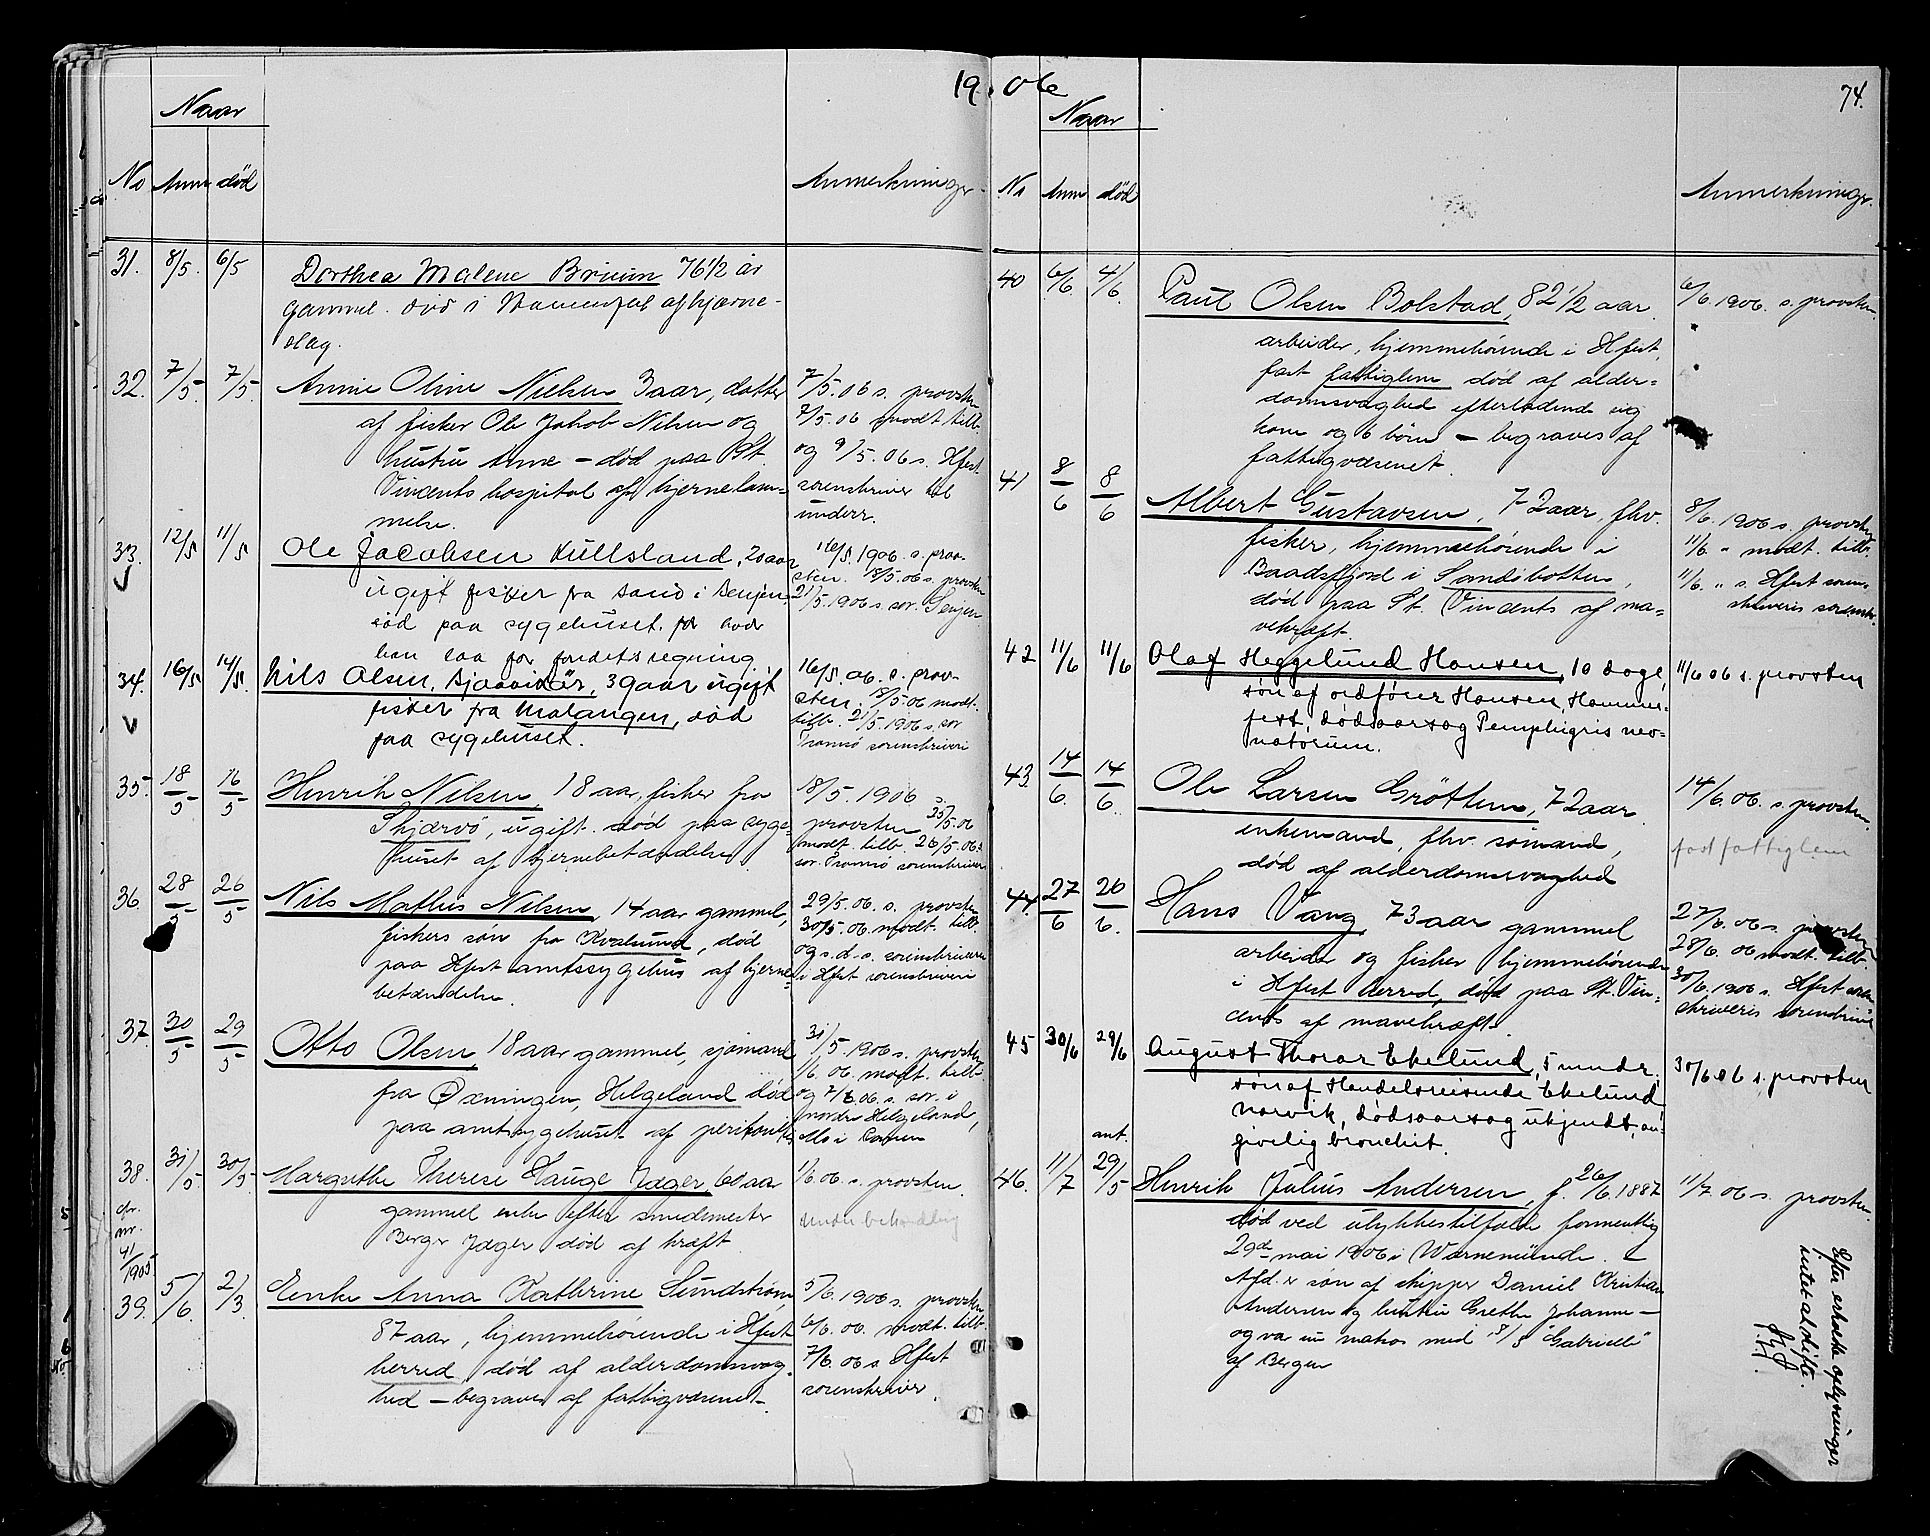 1906
74.
Naar
No Anm død
Anmerkninger
31. 8/5. 6/5
Dorothea Malene Bruun 76 1/2 år
gammel. død i Hammerfest af hjerne-
slag.
32. 7/5 7/5.
Annie Oline Nielsen 3 aar, datter
af fisker Ole Jakob Nilsen og
hustru Anne – død paa St.
Vincents hospital af hjernelam-
melse.
7/5.06 s. provsten
7/5.06 modt tilb.
og 9/5.06 s. Hfest.
sorenskriver til
underr.
33. 12/5 11/5
Ole Jacobsen Kullsland, 20 aar
ugift fisker fra Sand i Senjen.
død paa sygehuset. for hvor
han laa for fondets regning.
16/5 1906 s. prov-
sten. 18/5.06 s. provsten
21/5 1906 s. sor. Senjen
34. 16/5 14/5.
Nils Olsen, 39 aar ugift
fisker fra Malangen, død
paa sygehuset.
16/5.06. s. prov-
sten. 18/5.06 modt.
tilb. 21/5.1906 s. sor
Tromsø sorenskriveri
35. 18/5 16/5
Henrik Nilsen, 18 aar, fisker fra
Skjærvø, ugift. død paa syge-
huset af hjernebetændelse
18/5.1906 s.
provsten 25/5.06
modt. tilb. 26/5.06 s.
sor. Tromsø sorenskriveri
36. 28/5 26/5
Nils Mathis Nilsen, 14 aar gammel,
fiskers søn fra Kvalsund, død
paa Hfest amtssygehus af hjerne-
betændelse.
29/5.06. s. provsten
30/5.06. modt. tilb.
og s.d. s. sorenskriveren
i Hfest sorenskriveri
37. 30/5 29/5
Otto Olsen, 18 aar gammel, sjømand
fra Øxningen, Helgeland død
paa amtsygehuset af peritonitis
31/5.1906 s. provsten
1/6.06. modt. tilb.
og 7/6.06. s. sor. i
nordre Helgeland,
Mo i Ranen
38. 31/5 30/5
cfr. nr. 41/1905
Margrethe Therese Hauge Jæger, 60 aar
gammel enke efter smedemester
Berger Jæger død af kræft
1/6.06. s. provsten.
under behandling
39. 5/6. 2/3
Enke Anna Kathrine Sundstrøm
87 aar, hjemmehørende i Hfest
herred, død af alderdomssvag-
hed – begraves af fattigvæsenet.
5/6.1906 s. provsten
6/6.06. modt. tilb.
7/6.06 s Hfest
sorenskriver.
Naar
No Anm død
Anmerkninger.
40 6/6. 4/6.
Paul Olsen Bolstad, 82 1/2 aar.
arbeider, hjemmehørende i Hfest,
fast fattiglem død af alder-
domsvaghed efterladende sig
kone og 6 børn – begraves af
fattigvæsenet.
6/6.1906. s. provsten.
41 8/6 8/6
Albert Gustavsen, 72 aar, fhv.
fisker, hjemmehørende i
Baadsfjord i Sandøbotten,
død paa St. Vincents af ma-
vekræft.
8/6.1906 s. provsten
11/6. " modt. tilb.
11/6. " s. Hfest soren-
skriveris sorenskr.
42 11/6 11/6
Olaf Heggelund Hansen, 10 dage,
søn af ordfører Hansen, Hammer-
fest, dødsaarsag Pemphigris neo-
natorum.
11/6 06 s. provsten
43. 14/6. 14/6.
Ole Larsen Grøtten, 72 aar.
enkemand, fhv. sømand,
død af alderdomssvaghed
14/6.06. s. provsten.
fast fattiglem
44. 27/6 26/6.
Hans Vang, 73 aar gammel
arbeider og fisker hjemmehørende
i Hfest herred, død paa St. Vin-
cents af mavekræft.
27/6.06 s. provsten
28/6.06 modt. tilb.
30/6.1906 s. Hfest soren
skriveris sorenskriver
45 30/6 29/6
August Thorar Ekelund, 5 mndr.
søn af Handelsreisende Ekelund
Narvik, dødsaarsag ukjendt, an-
givelig bronchit.
30/6 06 s. provsten
46. 11/7 ant. 29/5
Henrik Julius Andersen, f. 26/6.1887
død ved ulykkestilfælde formentlig
29de mai 1906 i Warnemünde. –
Afd. er søn af skipper Daniel Kristian
Andersen og hustru Grethe Johanne –
og var en matros med S/S "Gabrielle"
af Bergen
11/7.06 s. provsten.
Efter erholdte oplysninger
intet at skifte.